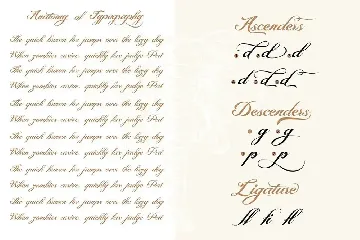 Anatomy of Typography
The quick brown fox jumps over the lazy dog
When zombies arrive, quickly fax judge Pat
The quick brown fox jumps over the lazy dog
When zombies arrive, quickly fax judge Pat
The quick brown fox jumps over the lazy dog
When zombies arrive, quickly fax judge Pat
The quick brown fox jumps over the lazy dog
When zombies arrive, quickly fax judge Pat
The quick brown fox jumps over the lazy dog
When zombies arrive, quickly fax judge Pat
The quick brown fox jumps over the lazy dog
When zombies arrive, quickly fax judge Pat
Ascenders
d d d
d d d
Descenders
g g
p p
Ligature